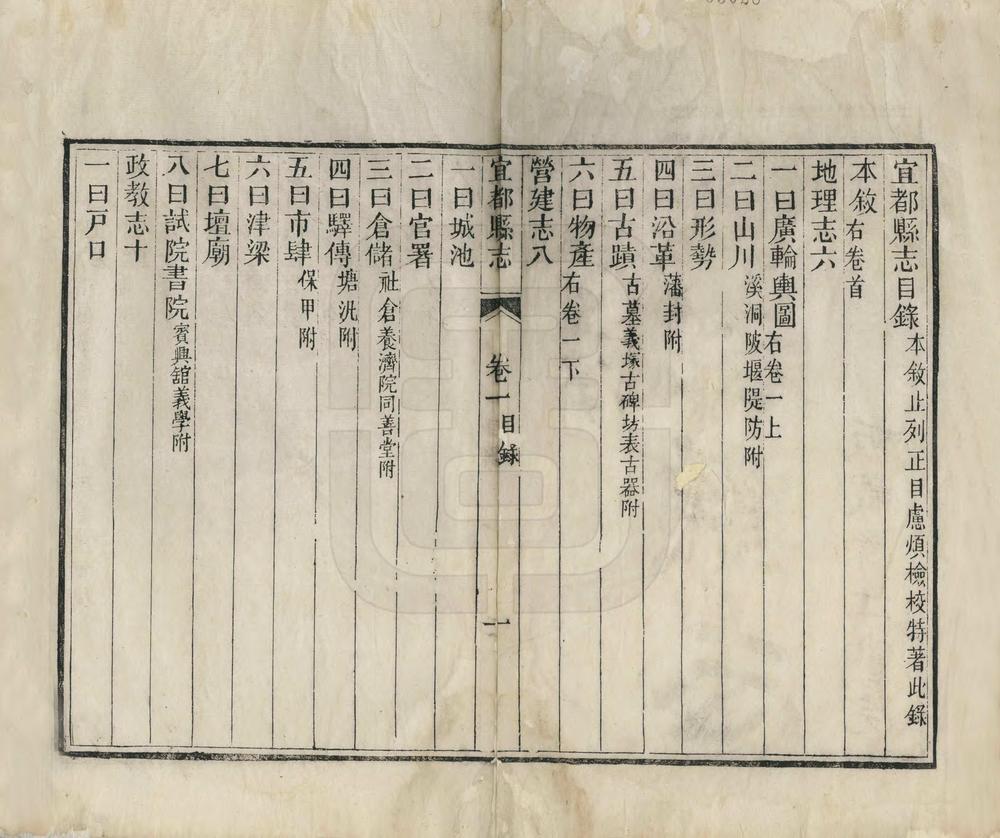 宜都縣志目錄本敘止列正目慮煩檢校特著此錄
本敘右卷首
地理志六
一曰廣輪輿圖右卷一上
二曰山川溪洞陂堰隄防附
三曰形勢
四曰沿革藩封附
五曰古蹟古墓義塚古碑坊表古器附
六曰物產右卷一下
營建志八
宜都縣志 卷一目錄 一
一曰城池
二曰官署
三曰倉儲社倉養濟院同善堂附
四曰驛傳塘汛附
五曰市肆保甲附
六曰津梁
七曰壇廟
八曰試院書院賓興舘義學附
政教志十
一曰戸口